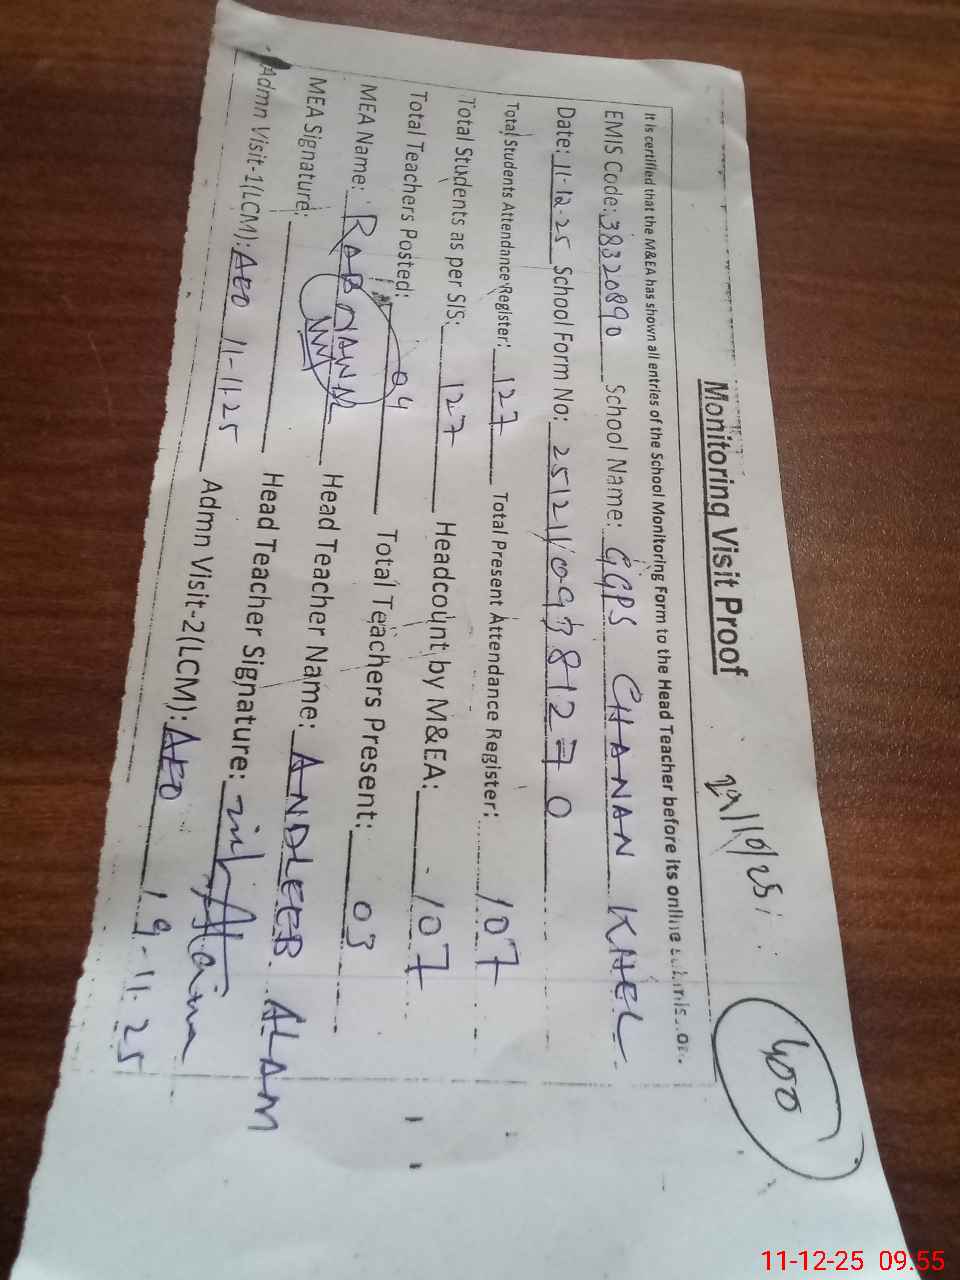 Monitoring Visit Proof
29/10/25
400
It is certified that the M&EA has shown all entries of the School Monitoring Form to the Head Teacher before its online
EMIS Code: 38320890 School Name: GGPS CHANAN KHEL
Date: 11-12-25 School Form No: 25121109381270
Total Students Attendance Register: 127 Total Present Attendance Register: 107
Total Students as per SIS: 127 Headcount by M&EA: 107
Total Teachers Posted: 04 Total Teachers Present: 03
MEA Name: RAB NAWAZ Head Teacher Name: ANDLEEB ALAM
MEA Signature: Head Teacher Signature:
Admn Visit-1(LCM): AEO 11-11-25 Admn Visit-2(LCM): AEO 19-11-25
11-12-25 09.55